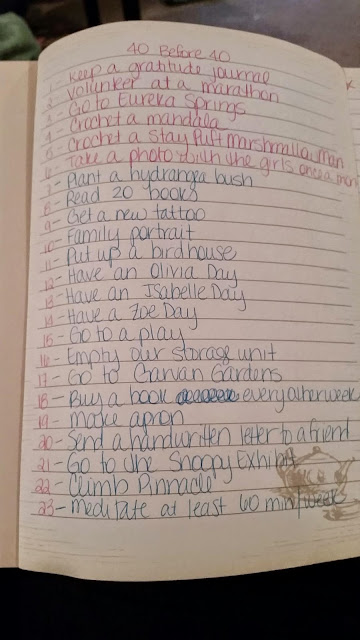 40 Before 40
1- Keep a gratitude journal
2- Volunteer at a marathon
3- Go to Eureka Springs
4- Crochet a mandala
5- Crochet a Stay Puft Marshmallow Man
6- Take a photo with the girls once a month
7- Plant a hydrangea bush
8- Read 20 books
9- Get a new tattoo
10- Family portrait
11- Put up a birdhouse
12- Have an Olivia Day
13- Have an Isabelle Day
14- Have a Zoe Day
15- Go to a play
16- Empty our storage unit
17- Go to Garvan Gardens
18- Buy a book every other week
19- Make apron
20- Send a handwritten letter to a friend
21- Go to the Snoopy Exhibit
22- Climb Pinnacle
23- Meditate at least 60 min/week